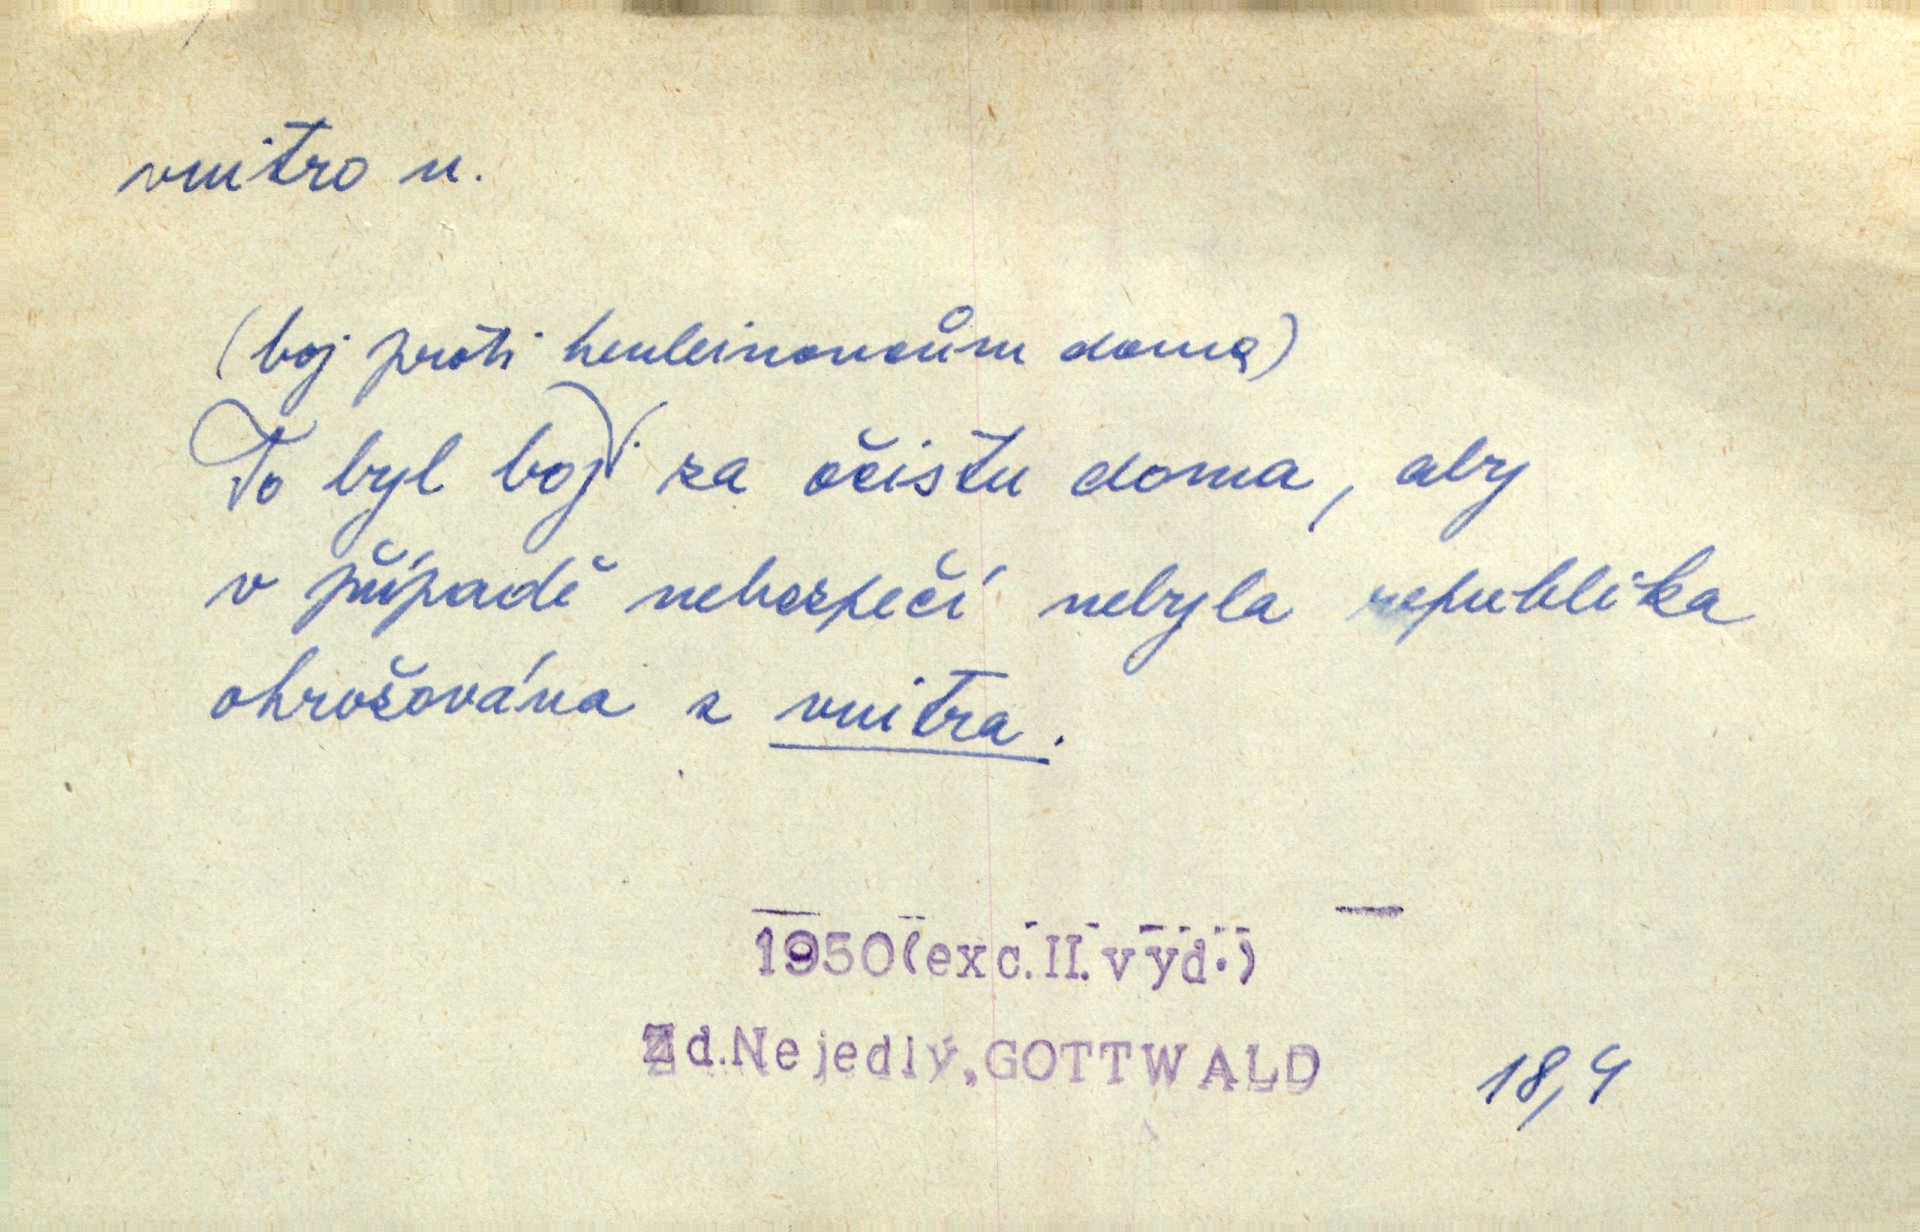 vnitro n.
(boj proti henleinovcům doma)
To byl boj i za očistu doma, aby
v případě nebezpečí nebyla republika
ohrožována z vnitra.
1950(exc.II.vyd.)
Zd.Nejedlý,GOTTWALD
18,4